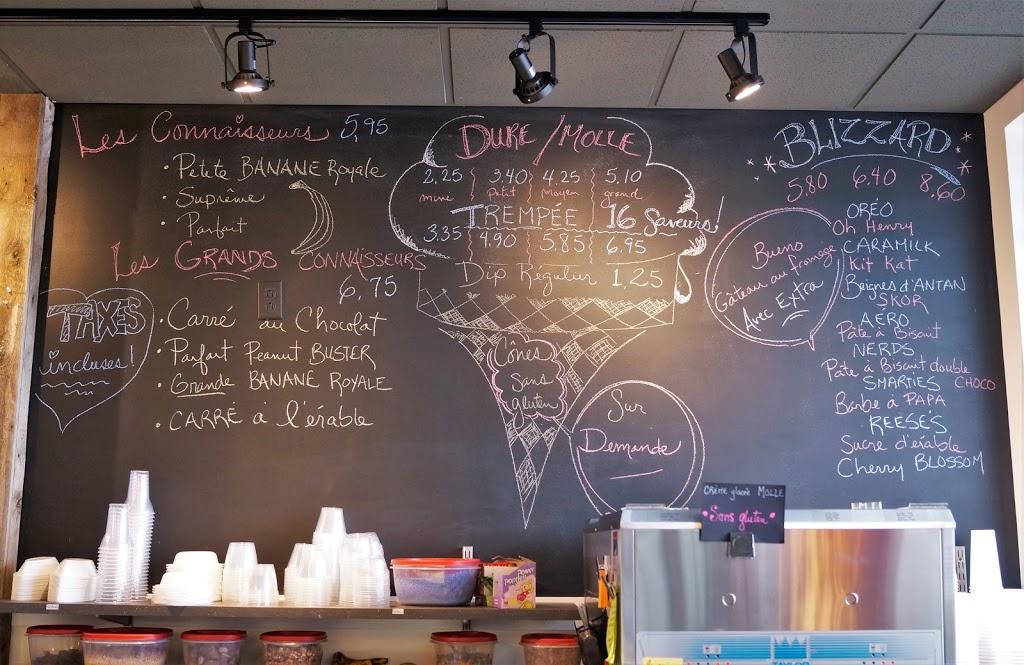 Les Connaisseurs 5,95
• Petite BANANE Royale
• Suprême
• Parfait
Les GRANDS CONNAISSEURS
6,75
• Carré au Chocolat
• Parfait Peanut BUSTER
• Grande BANANE ROYALE
• CARRÉ à l'érable
TAXES
incluses!
DURE/MOLLE
2,25 3,40 4,25 5,10
mini petit moyen grand
TREMPÉE 16 Saveurs!
3.35 4.90 5.85 6.95
Dip Régulier 1,25
Cônes
Sans
gluten
Sur
Demande
BLIZZARD
5.80 6.40 8.60
Bueno
Gâteau au fromage
Avec Extra
ORÉO
Oh Henry
CARAMILK
Kit Kat
Beignes d'ANTAN
SKOR
AERO
Pâte à Biscuit
NERDS
Pâte à Biscuit double
SMARTIES CHOCO
Barbe à PAPA
REESE'S
Sucre d'érable
Cherry BLOSSOM
CRÈME glacée MOLLE
Sans gluten
TAYLOR